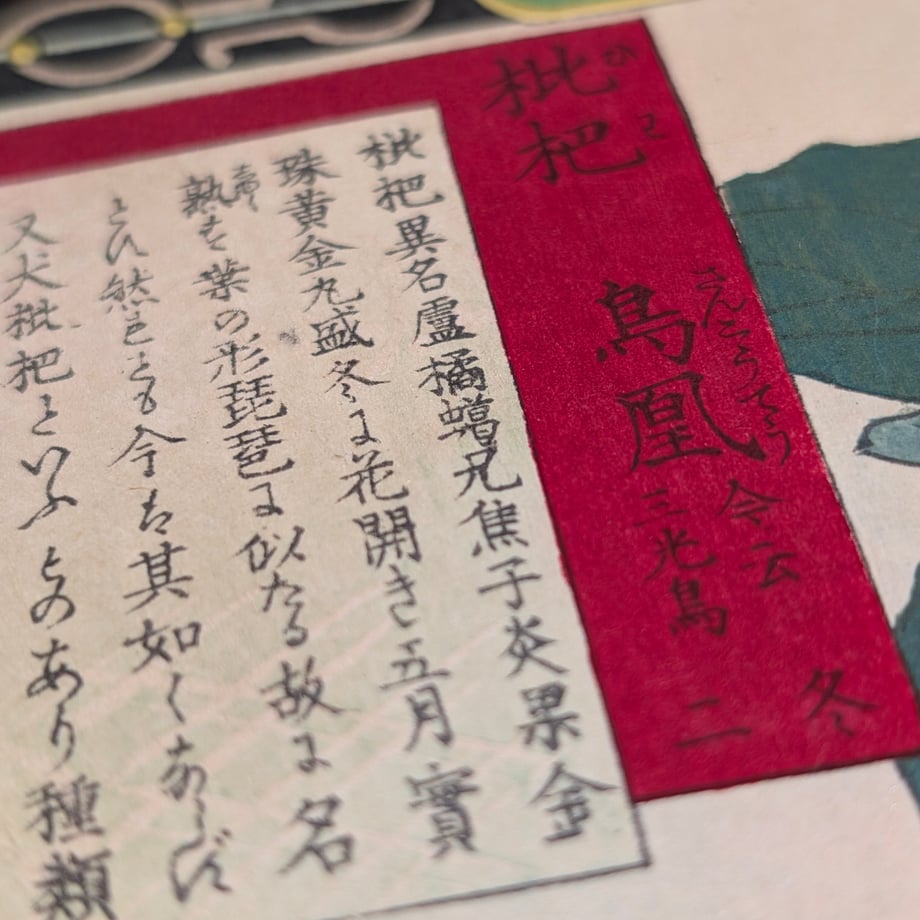 枇杷
ひわ
鳥鳳
さんこうてう
今云
三光鳥
冬
二
枇杷異名盧橘蠟兄焦子炎果金
珠黄金丸盛冬に花開き五月實
熟す葉の形琵琶に似たる故に名
とひ然とも今は其如くあらず
又犬枇杷といふものあり種類